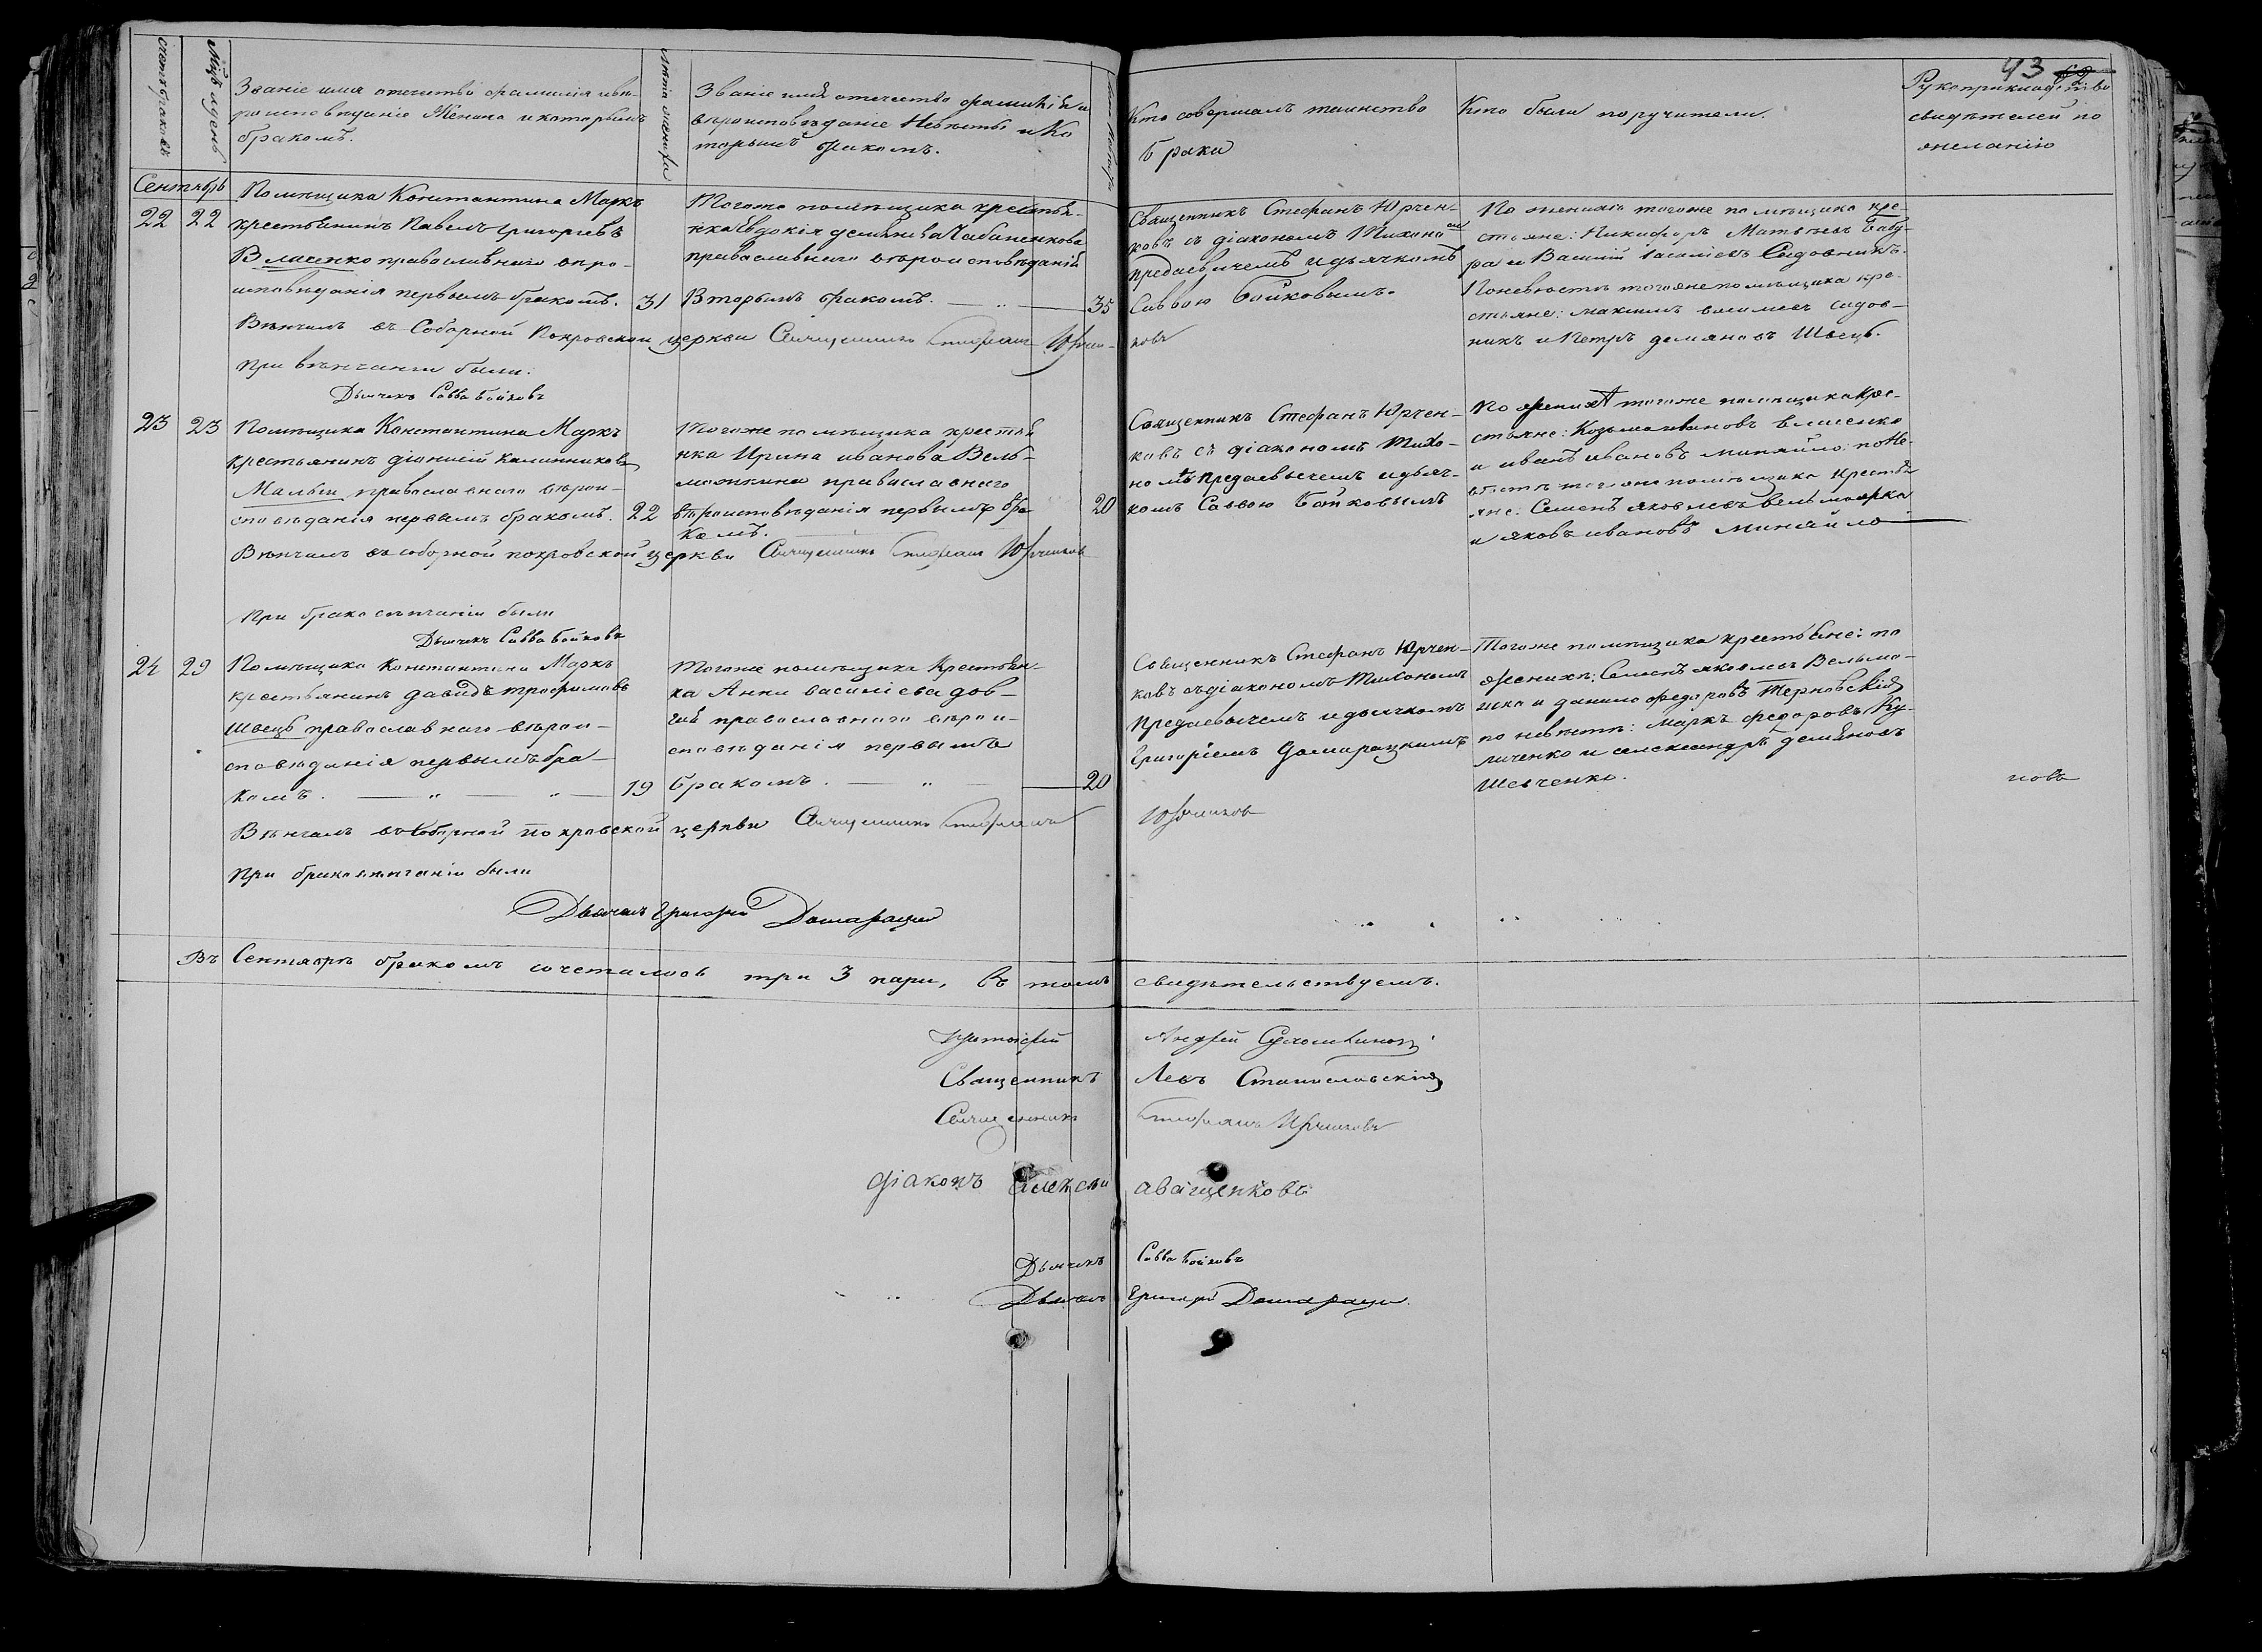 43 62
Счетъ браковъ
Мцъ и день
Званіе имя отечество фамилія и вѣ-
роисповѣданіе Жениха и которымъ
бракомъ.
Лѣта жениха
Званіе имя отечество фамилія и
вѣроисповѣданіе Невѣсты и Ко
торымъ бракомъ.
Лѣта невѣсты
Кто совершалъ таинство
брака
Кто были поручители.
Рукоприкладство
свидѣтелей по
желанію
Сентябрь
22 22
Помѣщика Константина Маркъ
крестьянинъ Павелъ Григорьевъ
Власенко православнаго вѣро-
исповѣданія первымъ бракомъ. 31
Тогоже помѣщика крестьян-
нка Евдокія Демянова Чабаненкова
православнаго вѣроисповѣданія
Вторымъ бракомъ. 35
Священникъ Стефанъ Юрчен-
ковъ съ діакономъ Тихономъ
Предаевичемъ и дьячкомъ
Саввою Бойковымъ.
По женихѣ тогоже помѣщика кре-
стьяне: Никифоръ Матвѣевъ Бабу-
ра и Василій Василіевъ Садовникъ.
По невѣстѣ тогоже помѣщика кре-
стьяне: Максимъ васильевъ садов-
никъ и Петръ демяновъ Швецъ.
Вѣнчалъ въ Соборной Покровской церкви Священникъ Стефанъ Юрчен-
ковъ
При вѣнчаніи были:
Дьячекъ Савва Бойковъ
23 23
Помѣщика Константина Маркъ
крестьянинъ діонисій Калинниковъ
Малый православнаго вѣрои-
сповѣданія первымъ бракомъ. 22
Тогоже помѣщика крестья
нка Ирина иванова Вель-
можкина православнаго
вѣроисповѣданія первымъ бра
комъ. 20
Священникъ Стефанъ Юрчен-
ковъ съ діакономъ Тихо-
номъ Предаевичемъ и дьяч-
комъ Саввою Бойковымъ
По женихѣ тогоже помѣщика кре-
стьяне: Козьма ивановъ власенко
и иванъ ивановъ миняйло: по не-
вѣстѣ тогоже помѣщика крестья
яне: Семенъ яковлевъ вельможка
и яковъ ивановъ миняйло
Вѣнчалъ въ соборной покровской церкви Священникъ Стефанъ Юрченковъ
При бракосочетаніи были
Дьячекъ Савва Бойковъ
24 29
Помѣщика Константина Маркъ
крестьянинъ давидъ трофимовъ
швецъ православнаго вѣрои-
сповѣданія первымъ бра-
комъ. 19
Тогоже помѣщика Крестьян-
ка Анна василіева дов-
гай православнаго вѣрои-
сповѣданія первымъ
бракомъ. 20
Священникъ Стефанъ Юрчен-
ковъ съ діакономъ Тихономъ
Предаевичемъ и дьячкомъ
Григоріемъ Домарацкимъ
Тогоже помѣщика крестьяне: по
женихѣ: Семенъ яковлевъ Вельмо-
жка и данило федоровъ Терновскій
по невѣстѣ: Маркъ федоровъ Ку-
личенко и александръ демяновъ
Шевченко.
новъ
Вѣнчалъ въ Соборной покровской церкви Священникъ Стефанъ
Юрченковъ
При бракосочетаніи были
Дьячекъ Григорій Домарацкій
Въ Сентябрѣ бракомъ сочеталось три 3 пары, въ томъ свидѣтельствуемъ.
Протоіерей Андрей Сухомлиновъ
Священникъ Левъ Станиславскій
Священникъ Стефанъ Юрченковъ
діаконъ Алексѣй иващенковъ
Дьячекъ Савва Бойковъ
Дьячекъ Григорій Домарацкій